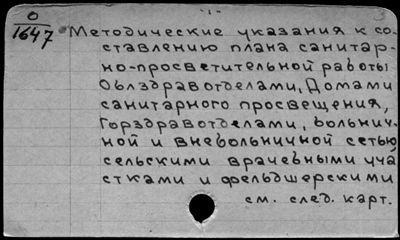 - 1 -
0
1647
Методические указания к со-
ставлению плана санитар-
но-просветительной работы
Облздравотделами, Домами
санитарного просвещения,
Горздравотделами, больнич-
ной и внебольничной сетью,
сельскими врачебными уча
стками и фельдшерскими
см. след. карт.